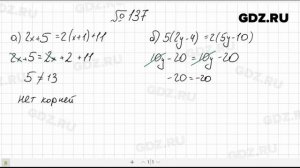 GDZ.RU
№137
а) 2x+5=2(x+1)+11
2x+5=2x+2+11
5≠13
нет корней
б) 5(2y-4)=2(5y-10)
10y-20=10y-20
-20=-20